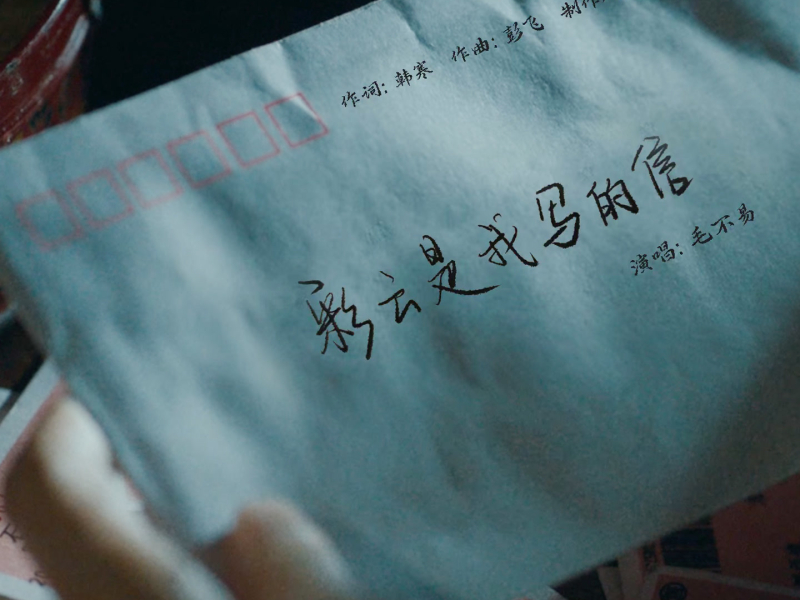 作词：韩寒 作曲：彭飞 制作
彩云是我写的信
演唱：毛不易